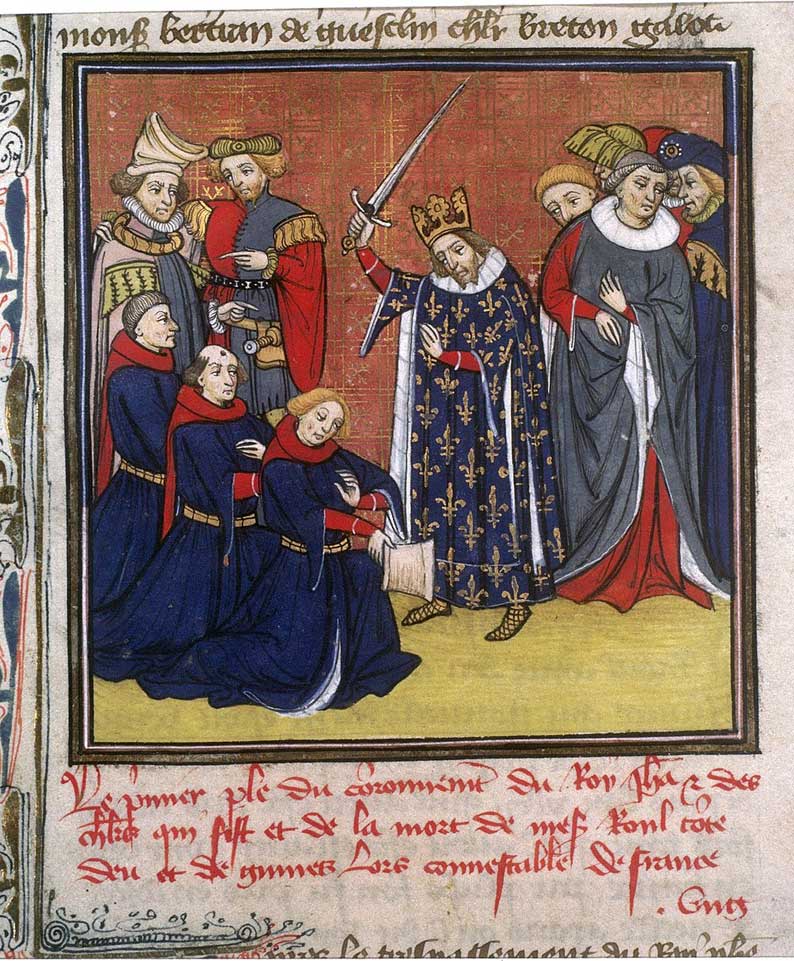 mons bertran de guesclin chlr breton
Le pmier ple du coronnemt du Roy Jhā & des
chlrs qui fist et de la mort de mess Roul cōte
deu et de guines Lors connestable de france
le trespassement du Roy phe